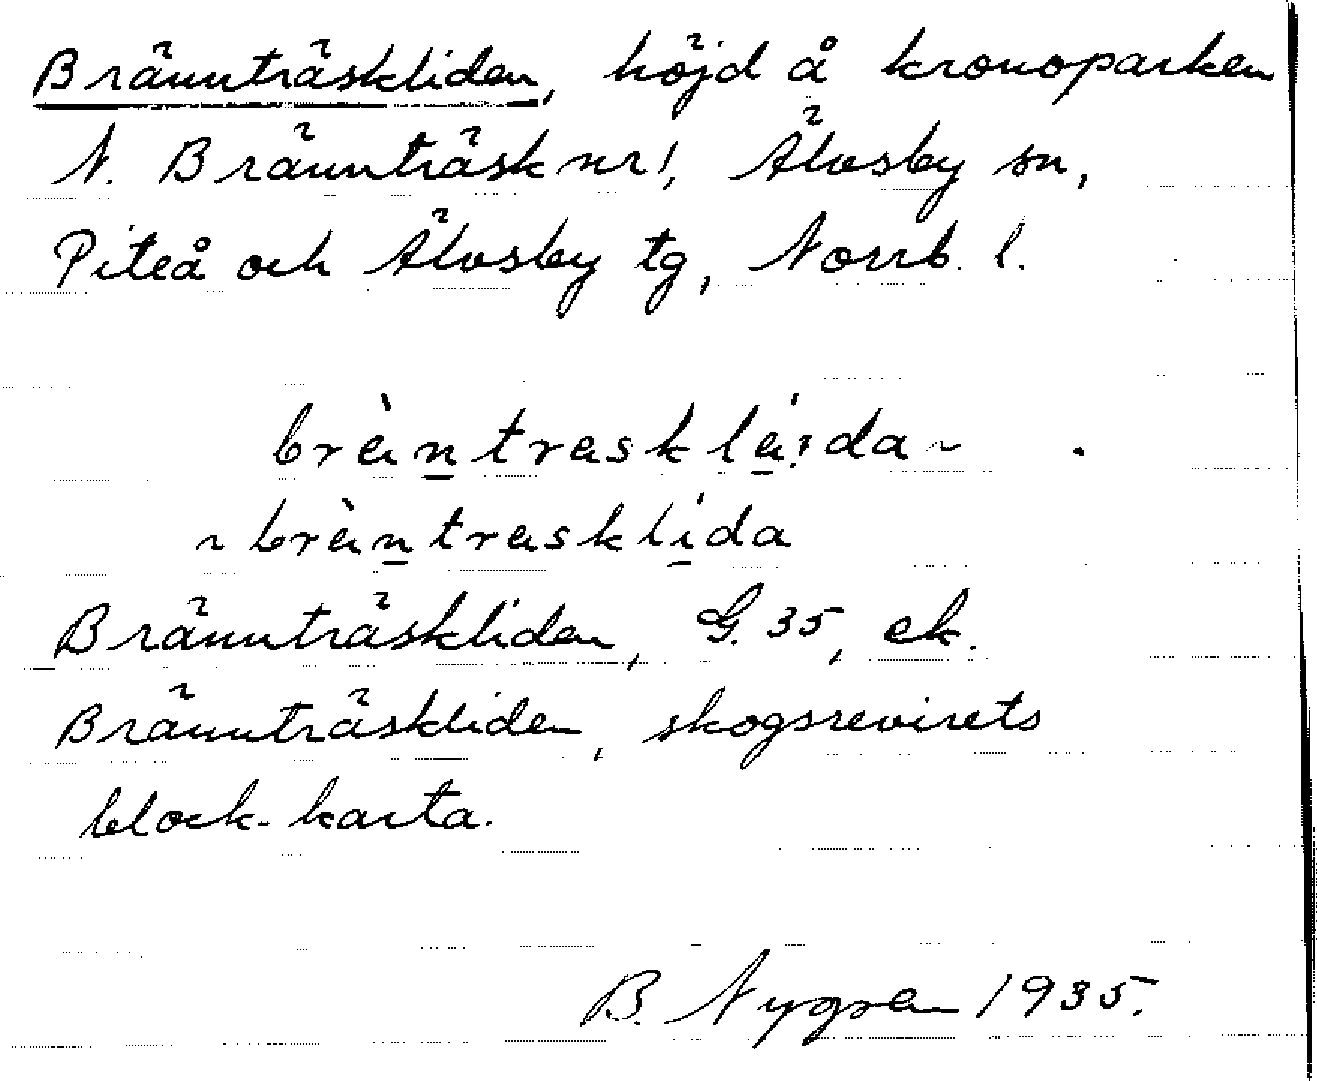 Brännträskliden, höjd å kronoparken
N. Brännträsk nr 1, Älvsby sn,
Piteå och Älvsby tg, Norrb. l.
brèntresklái̯da ~
~ brèntresklída
Brännträskliden, G. 35, ek.
Brännträskliden, skogsrevirets
block-karta.
B. Nygren 1935.